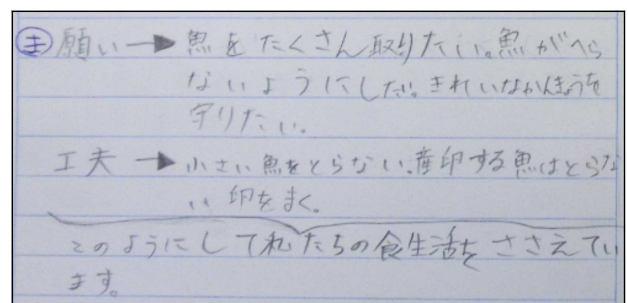 ま 願い→魚をたくさん取りたい。魚がへら
ないようにしたい。きれいなかんきょうを
守りたい。
工夫→小さい魚をとらない。産卵する魚はとらな
い 卵をまく。
このようにして私たちの食生活をささえてい
ます。